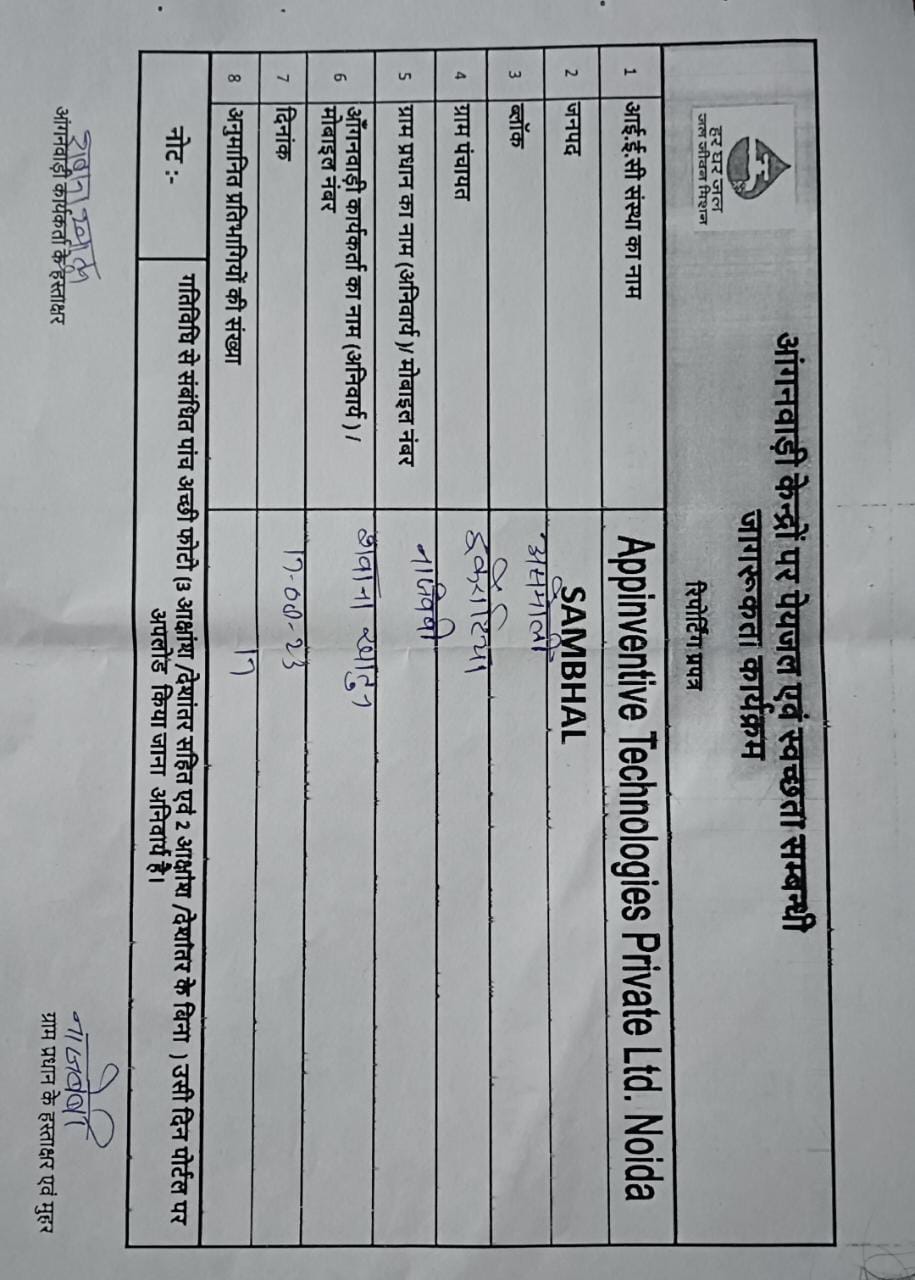 आंगनवाड़ी केन्द्रों पर पेयजल एवं स्वच्छता सम्बन्धी
जागरूकता कार्यक्रम
हर घर जल
जल जीवन मिशन
रिपोर्टिंग प्रपत्र
1 आई.ई.सी संस्था का नाम Appinventive Technologies Private Ltd. Noida
2 जनपद SAMBHAL
3 ब्लॉक असमोली
4 ग्राम पंचायत
5 ग्राम प्रधान का नाम (अनिवार्य )/ मोबाइल नंबर
6 आँगनवाड़ी कार्यकर्ता का नाम (अनिवार्य ) /
मोबाइल नंबर
7 दिनांक 17-08-23
8 अनुमानित प्रतिभागियों की संख्या 17
नोट :- गतिविधि से संबंधित पांच अच्छी फोटो (3 आक्षांश /देशांतर सहित एवं 2 आक्षांश /देशांतर के बिना ) उसी दिन पोर्टल पर
अपलोड किया जाना अनिवार्य है।
आंगनवाड़ी कार्यकर्ता के हस्ताक्षर
ग्राम प्रधान के हस्ताक्षर एवं मुहर